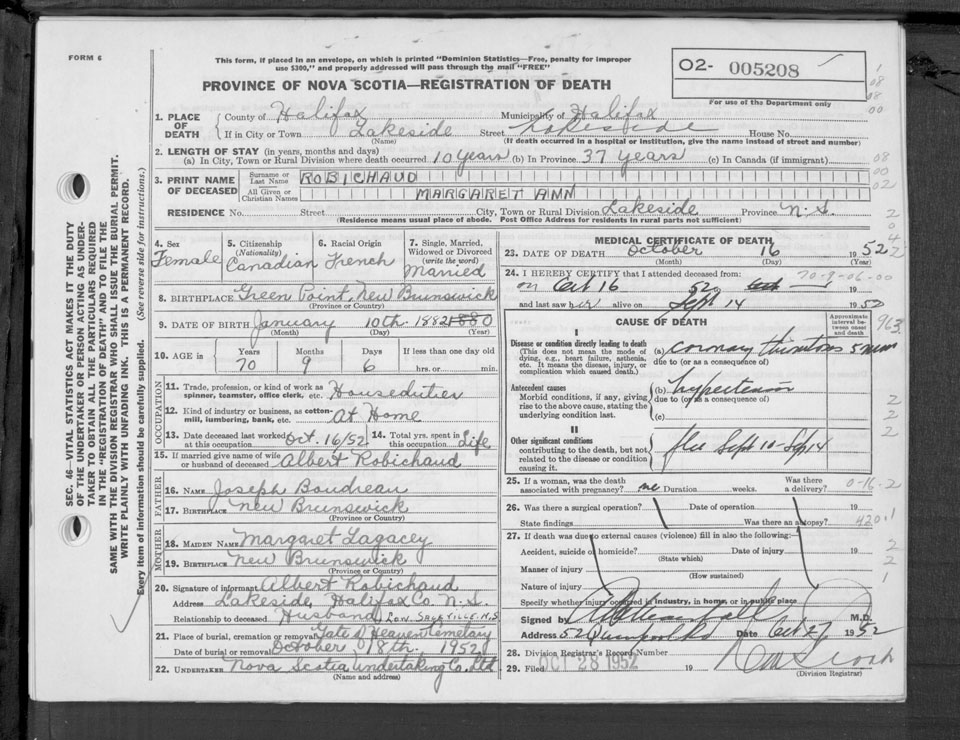 FORM 6
This form, if placed in an envelope, on which is printed "Dominion Statistics—Free, penalty for improper
use $300," and properly addressed will pass through the mail "FREE"
PROVINCE OF NOVA SCOTIA—REGISTRATION OF DEATH
O2- 005208
For use of the Department only
1. PLACE OF DEATH
County of Halifax Municipality of Halifax
If in City or Town Lakeside Street Lakeside House No.
(Name) (If death occurred in a hospital or institution, give the name instead of street and number)
2. LENGTH OF STAY (in years, months and days)
(a) In City, Town or Rural Division where death occurred 10 years (b) In Province 37 years (c) In Canada (if immigrant)
3. PRINT NAME OF DECEASED
Surname or Last Name ROBICHAUD
All Given or Christian Names MARGARET ANN
RESIDENCE No. Street City, Town or Rural Division Lakeside Province N.S.
(Residence means usual place of abode. Post Office Address for residents in rural parts not sufficient)
4. Sex
Female
5. Citizenship
(Nationality)
Canadian
6. Racial Origin
French
7. Single, Married, Widowed or Divorced
(write the word)
Married
8. BIRTHPLACE Green Point, New Brunswick
(Province or Country)
9. DATE OF BIRTH January 10th 1882 1880
(Month) (Day) (Year)
10. AGE in Years Months Days If less than one day old
70 9 6 hrs. or min.
OCCUPATION
11. Trade, profession, or kind of work as spinner, teamster, office clerk, etc. Houseduties
12. Kind of industry or business, as cotton-mill, lumbering, bank, etc. At Home
13. Date deceased last worked at this occupation Oct. 16/52 14. Total yrs. spent in this occupation Life
15. If married give name of wife or husband of deceased Albert Robichaud
FATHER
16. NAME Joseph Boudreau
17. BIRTHPLACE New Brunswick
(Province or Country)
MOTHER
18. MAIDEN NAME Margaret Lagacey
19. BIRTHPLACE New Brunswick
(Province or Country)
20. Signature of informant Albert Robichaud
Address Lakeside, Halifax Co. N.S.
Relationship to deceased Husband Low. Sackville N.S.
21. Place of burial, cremation or removal Gate of Heaven Cemetary
Date of burial or removal October 18th. 1952
22. UNDERTAKER Nova Scotia Undertaking Co. Ltd.
(Name and address)
MEDICAL CERTIFICATE OF DEATH
23. DATE OF DEATH October 16 1952
(Month) (Day) (Year)
24. I HEREBY CERTIFY that I attended deceased from:
on Oct 16 52 19
70-9-06-00
and last saw her alive on Sept 14 1952
CAUSE OF DEATH
Approximate interval between onset and death
963
I
Disease or condition directly leading to death
(This does not mean the mode of dying, e.g., heart failure, asthenia, etc. It means the disease, injury, or complication which caused death.)
(a) coronary thrombosis 5 min
due to (or as a consequence of)
Antecedent causes
Morbid conditions, if any, giving rise to the above cause, stating the underlying condition last.
(b) hypertension
due to (or as a consequence of)
(c)
II
Other significant conditions
contributing to the death, but not related to the disease or condition causing it.
flu Sept 10 - Sept 14
25. If a woman, was the death associated with pregnancy? no Duration weeks. Was there a delivery? 0-16-2
26. Was there a surgical operation? Date of operation 19
State findings Was there an autopsy? 420.1
27. If death was due to external causes (violence) fill in also the following:
Accident, suicide or homicide? Date of injury 19
(State which)
Manner of injury
(How sustained)
Nature of injury
Specify whether injury occurred in industry, in home, or in public place
Signed by M.D.
Address 52 Date Oct 27 1952
28. Division Registrar's Record Number
29. Filed OCT 28 1952 19
(Division Registrar)
SEC. 46—VITAL STATISTICS ACT MAKES IT THE DUTY
OF THE UNDERTAKER OR PERSON ACTING AS UNDER-
TAKER TO OBTAIN ALL THE PARTICULARS REQUIRED
IN THE "REGISTRATION OF DEATH" AND TO FILE THE
SAME WITH THE DIVISION REGISTRAR WHO SHALL ISSUE THE BURIAL PERMIT.
WRITE PLAINLY WITH UNFADING INK. THIS IS A PERMANENT RECORD.
Every item of information should be carefully supplied. (See reverse side for instructions.)